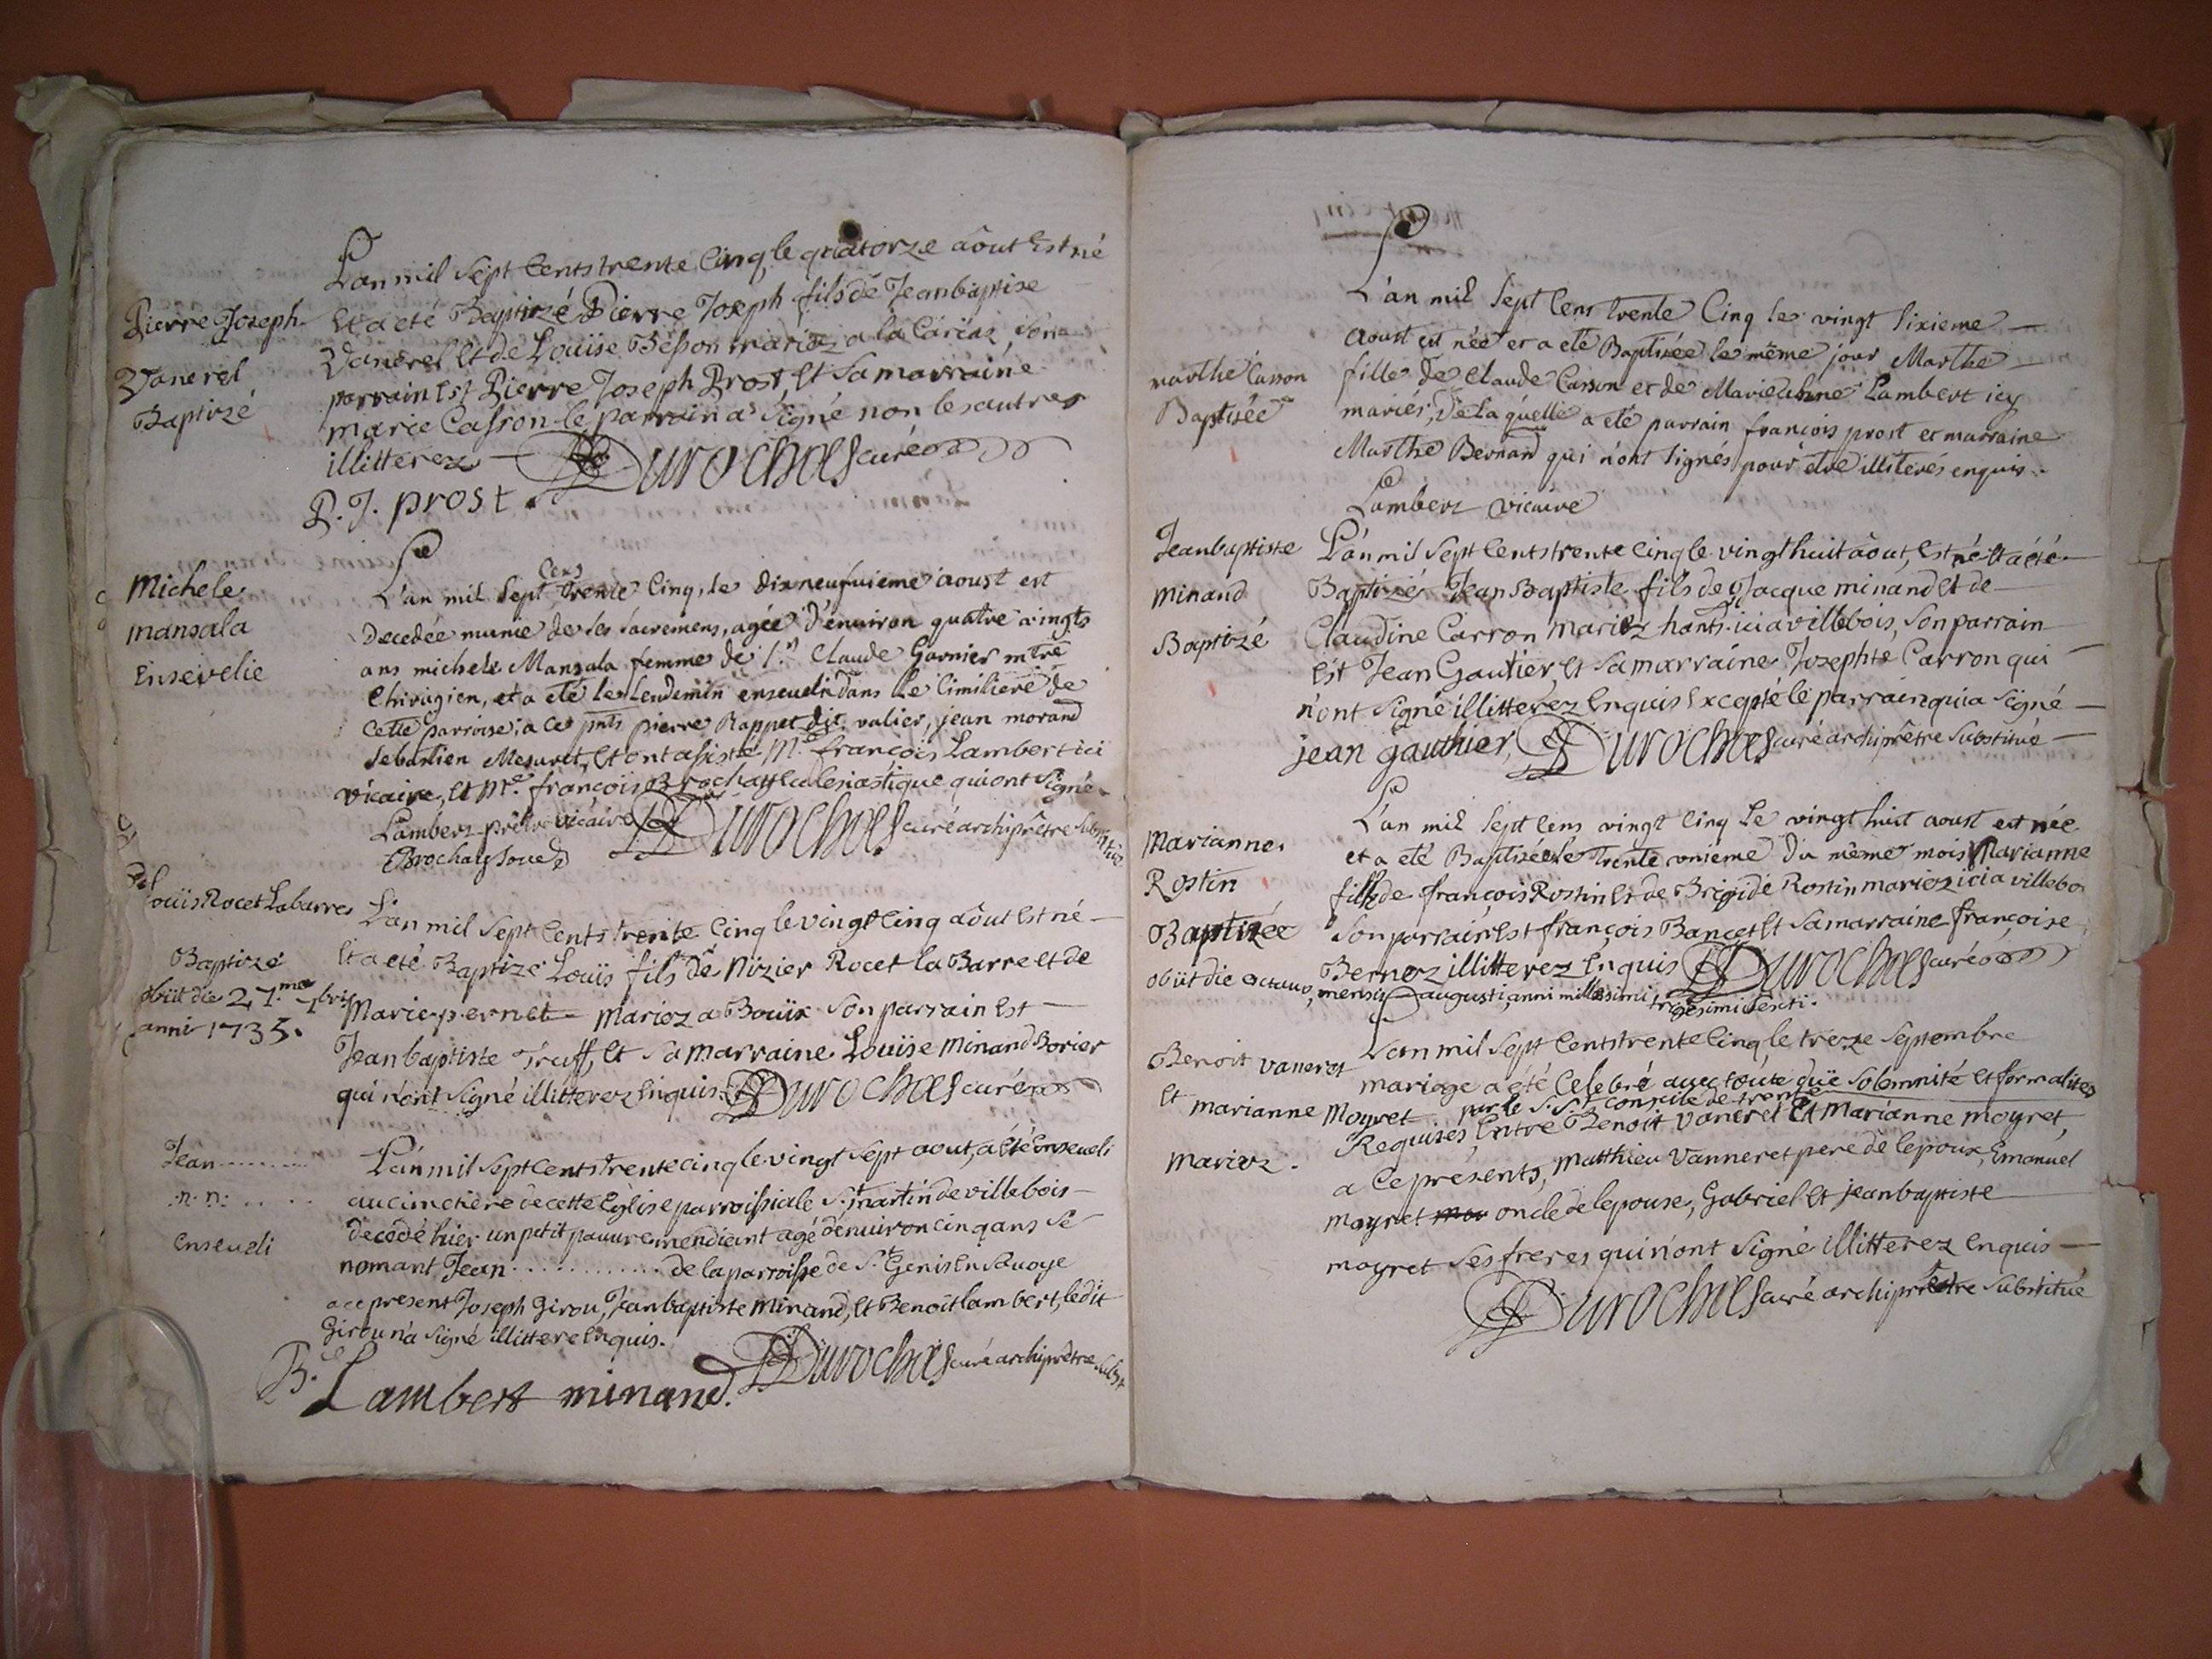 L'an mil sept cents trente cinq, le quatorze aôut est né
Pierre Joseph
et a eté Baptizé Pierre Joseph fils de Jean baptise
Vanerel
Vanerel et de Loüise Besson mariez a la
Baptizé
parrain est Pierre Joseph Prost, et sa marraine
marie Casson le parrain a signé non les autres
illitterez Durochas curé
P. J. prost
Michele
mansala
Ensevelie
L'an mil sept cens trente cinq, le dixneufuieme aoust est
decedée munie de ses sacremens, agée d'enuiron quatre vingts
ans michele Mansala femme de sr. Claude Garnier mtre
Chirugien, et a eté le lendemin enseuelie dans le cimitiere de
cette parroise, a ce pnts pierre Rappet dit valier, jean morand
sebastien Mesuret, et ont assisté Mre. françois Lambert ici
vicaire, et Mre. françois Brochay eclesiastique qui ont signé
Lambert prêtre vicaire Durochas curé archiprêtre substitué
Brochay
Loüis Rocet Labarre
Baptizé
obiit die 27.me 7bris
anni 1735.
L'an mil sept cents trente cinq le vingt cinq aôut est né
et a eté Baptizé Loüis fils de Nizier Rocet la Barre et de
Marie pernet mariez a Boüix son parrain est
Jean baptiste Truff, et sa marraine Loüise minand Borier
qui n'ont signé illitterez enquis. Durochas curé
Jean ........
.n. n. . . . .
enseueli
L'an mil sept cents trente cinq le vingt sept aout, a été enseueli
au cimetiere de cette Eglise parroissiale St. martin de villebois
decedé hier un petit pauure mendiant agé denuiron cinq ans se
nomant Jean ............ de la parroisse de St. Genis en Sauoye
a ce present Joseph Girou, Jean baptiste minand, et Benoit lambert, ledit
Girou n'a signé illitteré enquis.
B. Lambert minand. Durochas curé archiprêtre subst
marthe Casson
Baptisée
L'an mil sept cens trente cinq le vingt sixieme
aoust est née et a eté Baptisée le même jour Marthe
fille de Claude Casson et de Marie anne Lambert icy
mariés, de la quelle a eté parrain françois prost et marraine
Marthe Bernand qui n'ont signés pour etre illiterés enquis.
Lambert vicaire
Jean baptiste
minand
Baptizé
L'an mil sept cents trente cinq le vingt huit aôut, est né et a eté
Baptizé Jean Baptiste fils de Jacque minand et de
Claudine Carron mariez hants. ici a villebois, son parrain
est Jean Gautier, et sa marraine Josephte Carron qui
n'ont signé illitterez enquis excepté le parrain qui a signé
jean gauthier, Durochas curé archiprêtre substitué
Marianne
Rostin
Baptizée
L'an mil sept cens vingt cinq le vingt huit aoust est née
et a eté Baptisée le trente unieme du même mois Marianne
fille de françois Rostin et de Brigide Rostin mariez ici a villebo
son parrain est françois Bancet et sa marraine françoise
Bernoz illitterez enquis Durochas curé
obiit die octavo, mensis augusti, anni millesimi
trigesimi sexti.
Benoit Vaneret
et marianne Moyret
mariez.
L'an mil sept cents trente cinq, le treze septembre
mariage a été celebré auec toute düe solemnité et formalites
par le S. St. concile de trente
Requises, entre Benoit Vaneret et marianne moyret,
a ce presents, matthieu Vanneret pere de lepoux, Emanuel
moyret oncle de lepouse, Gabriel et jean baptiste
moyret ses freres qui n'ont signé illitterez enquis
Durochas curé archiprêtre substitué